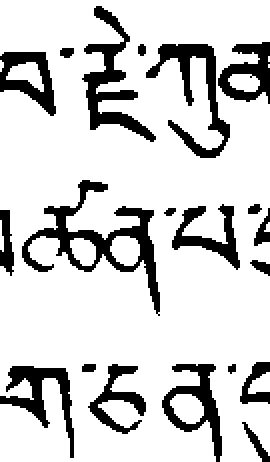 བ་རྗེ་ཀུན
ཚན་པ་
ག་ཅན་